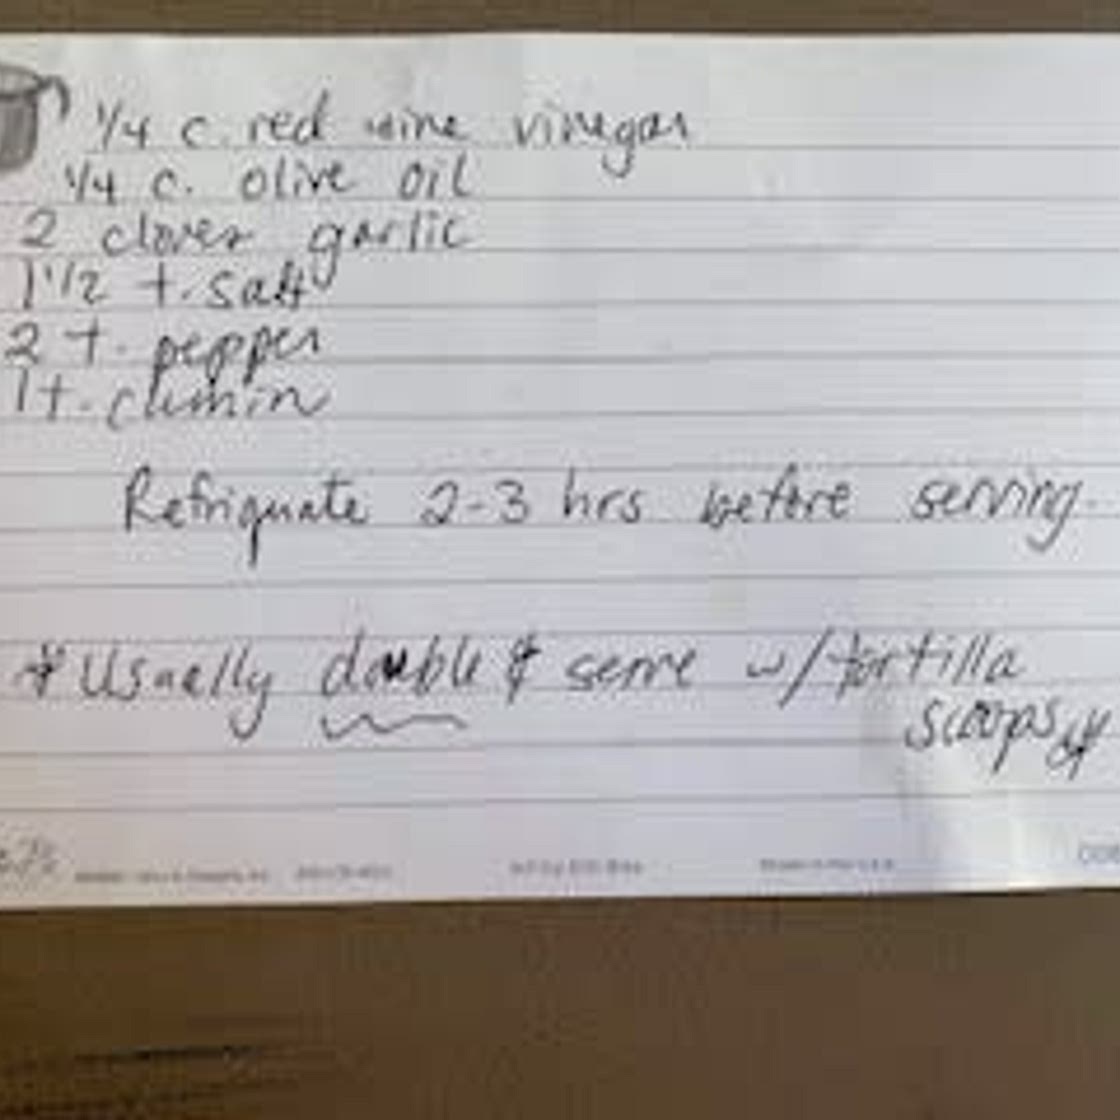 1/4 c. red wine vinegar
1/4 c. olive oil
2 cloves garlic
1 1/2 t. salt
2 t. pepper
1 t. cumin
Refrigerate 2-3 hrs before serving.
*Usually double & serve w/ tortilla
scoops*